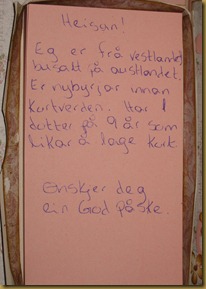 Heisan!
Eg er frå vestlandet
busatt på austlandet.
Er nybyrjar innan
kortverden. Har 1
dotter på 9 år som
likar å lage kort.
Ønskjer deg
ein God påske.